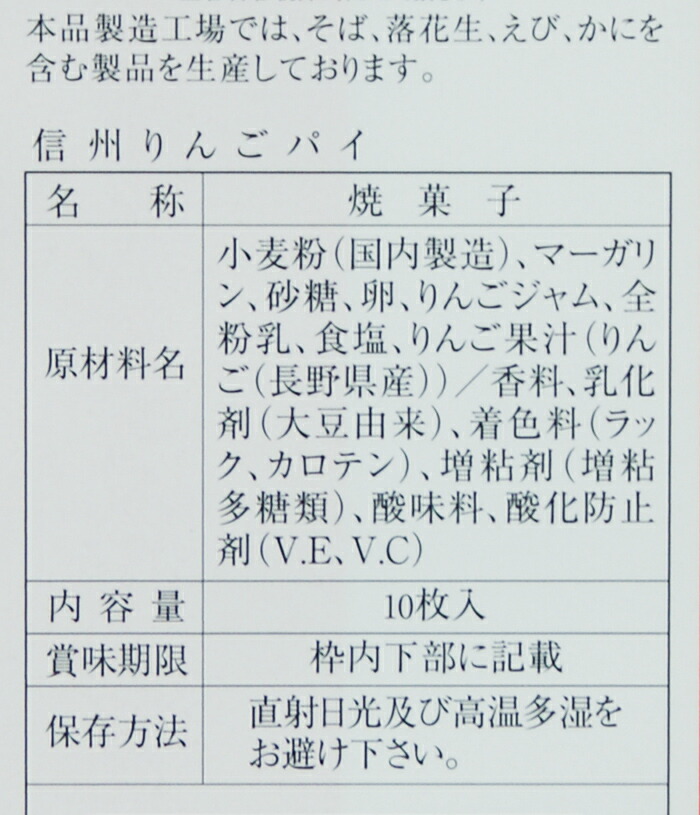 本品製造工場では、そば、落花生、えび、かにを
含む製品を生産しております。
信州りんごパイ
名称 焼菓子
原材料名 小麦粉(国内製造)、マーガリ
ン、砂糖、卵、りんごジャム、全
粉乳、食塩、りんご果汁(りん
ご(長野県産))／香料、乳化
剤(大豆由来)、着色料(ラッ
ク、カロテン)、増粘剤(増粘
多糖類)、酸味料、酸化防止
剤(V.E、V.C)
内容量 10枚入
賞味期限 枠内下部に記載
保存方法 直射日光及び高温多湿を
お避け下さい。